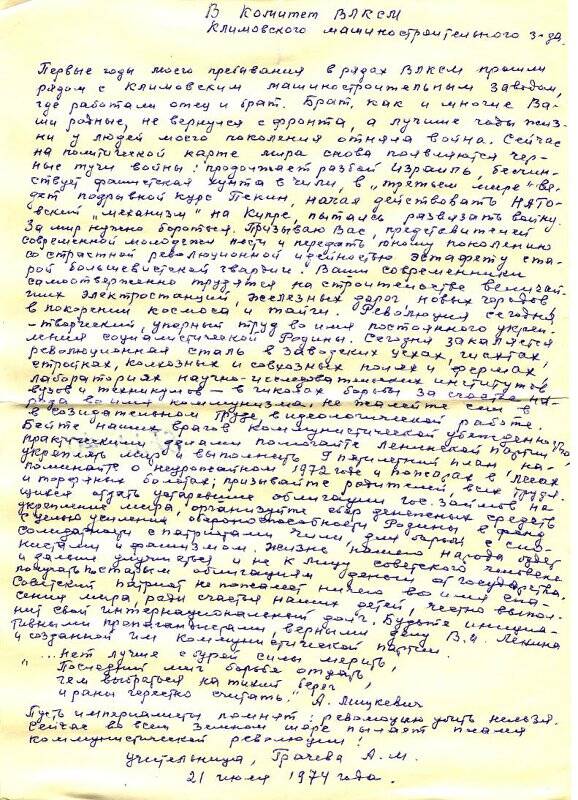 В Комитет ВЛКСМ
Климовского машиностроительного з-да.
Первые годы моего пребывания в рядах ВЛКСМ прошли
рядом с Климовским машиностроительным заводом,
где работали отец и брат. Брат, как и многие Ва-
ши родные, не вернулся с фронта, а лучшие годы жиз-
ни у людей моего поколения отняла война. Сейчас
на политической карте мира снова появляются чер-
ные тучи войны: продолжает разбой Израиль, бесчин-
ствует фашистская хунта в Чили, в „третьем мире" ве-
дет подрывной курс Пекин, начал действовать НАТО-
вский „механизм" на Кипре, пытаясь развязать войну.
За мир нужно бороться. Призываю Вас, представителей
современной молодежи нести и передать юному поколению
со страстной революционной идейностью эстафету ста-
рой большевистской гвардии. Ваши современники
самоотверженно трудятся на строительстве величай-
ших электростанций, железных дорог, новых городов
в покорении космоса и тайги. Революция сегодня
-творческий, упорный труд во имя постоянного укреп-
ления социалистической Родины. Сегодня закаляется
революционная сталь в заводских цехах, шахтах
стройках, колхозных и совхозных полях и фермах
лабораториях научно-исследовательских институтов
вузов и техникумов - в школах борьбы за счастье на-
рода во имя коммунизма, не жалейте сил в
в созидательном труде в идеологической работе.
Бейте наших врагов коммунистической убежденностью,
практическими делами помогайте Ленинской партии
укреплять мир и выполнять 9 пятилетний план, на-
поминайте о неурожайном 1972 годе и пожарах в лесах
и торфяных болотах; призывайте родителей, всех трудя-
щихся отдать устаревшие облигации гос. займов на
укрепление мира, организуйте сбор денежных средств
с целью усиления обороноспособности Родины в фонд
солидарности с патриотами Чили, для борьбы с сио-
нистами и фашизмом. Жизнь нашего народа будет
и дальше улучшаться и не к лицу советского человека
получать по старым облигациям деньги от государства.
Советский патриот не пожалеет ничего во имя спа-
сения мира, ради счастья наших детей, честно выпол-
нит свой интернациональный долг. Будьте инициа-
тивными пропагандистами, верными делу В.И. Ленина
и созданной им Коммунистической партии.
„...Нет лучше с бурей силы мерить,
Последний миг борьбе отдать,
чем выбраться на тихий берег
и раны горестно считать." А. Мицкевич
Пусть империалисты помнят: революцию убить нельзя.
Сейчас во всем земном шаре пылает пламя
коммунистической революции!
учительница, Грачева А.М.
21 июля 1974 года.